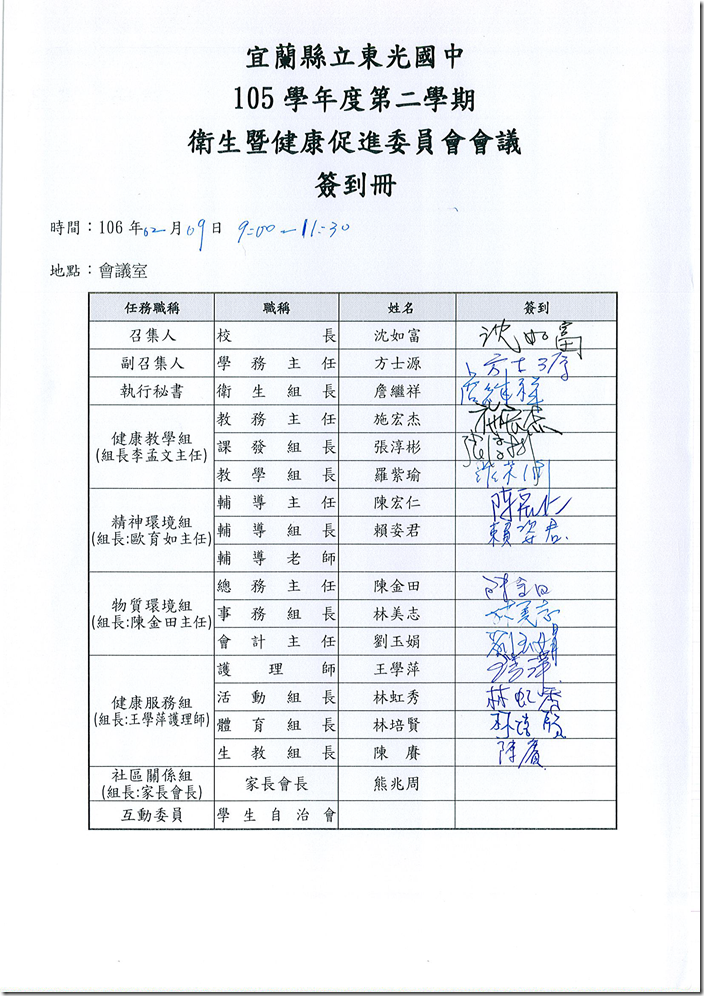 宜蘭縣立東光國中
105 學年度第二學期
衛生暨健康促進委員會會議
簽到冊
時間：106 年 02 月 09 日 9:00~11:30
地點：會議室
任務職稱 職稱 姓名 簽到
召集人 校長 沈如富 沈如富
副召集人 學務主任 方士源 方士源
執行秘書 衛生組長 詹繼祥 詹繼祥
健康教學組
(組長李孟文主任)
教務主任 施宏杰 施宏杰
課發組長 張淳彬
教學組長 羅紫瑜
精神環境組
(組長:歐育如主任)
輔導主任 陳宏仁 陳宏仁
輔導組長 賴姿君 賴姿君
輔導老師
物質環境組
(組長:陳金田主任)
總務主任 陳金田 陳金田
事務組長 林美志 林美志
會計主任 劉玉娟 劉玉娟
健康服務組
(組長:王學萍護理師)
護理師 王學萍
活動組長 林虹秀 林虹秀
體育組長 林培賢 林培賢
生教組長 陳賡 陳賡
社區關係組
(組長:家長會長)
家長會長 熊兆周
互動委員 學生自治會